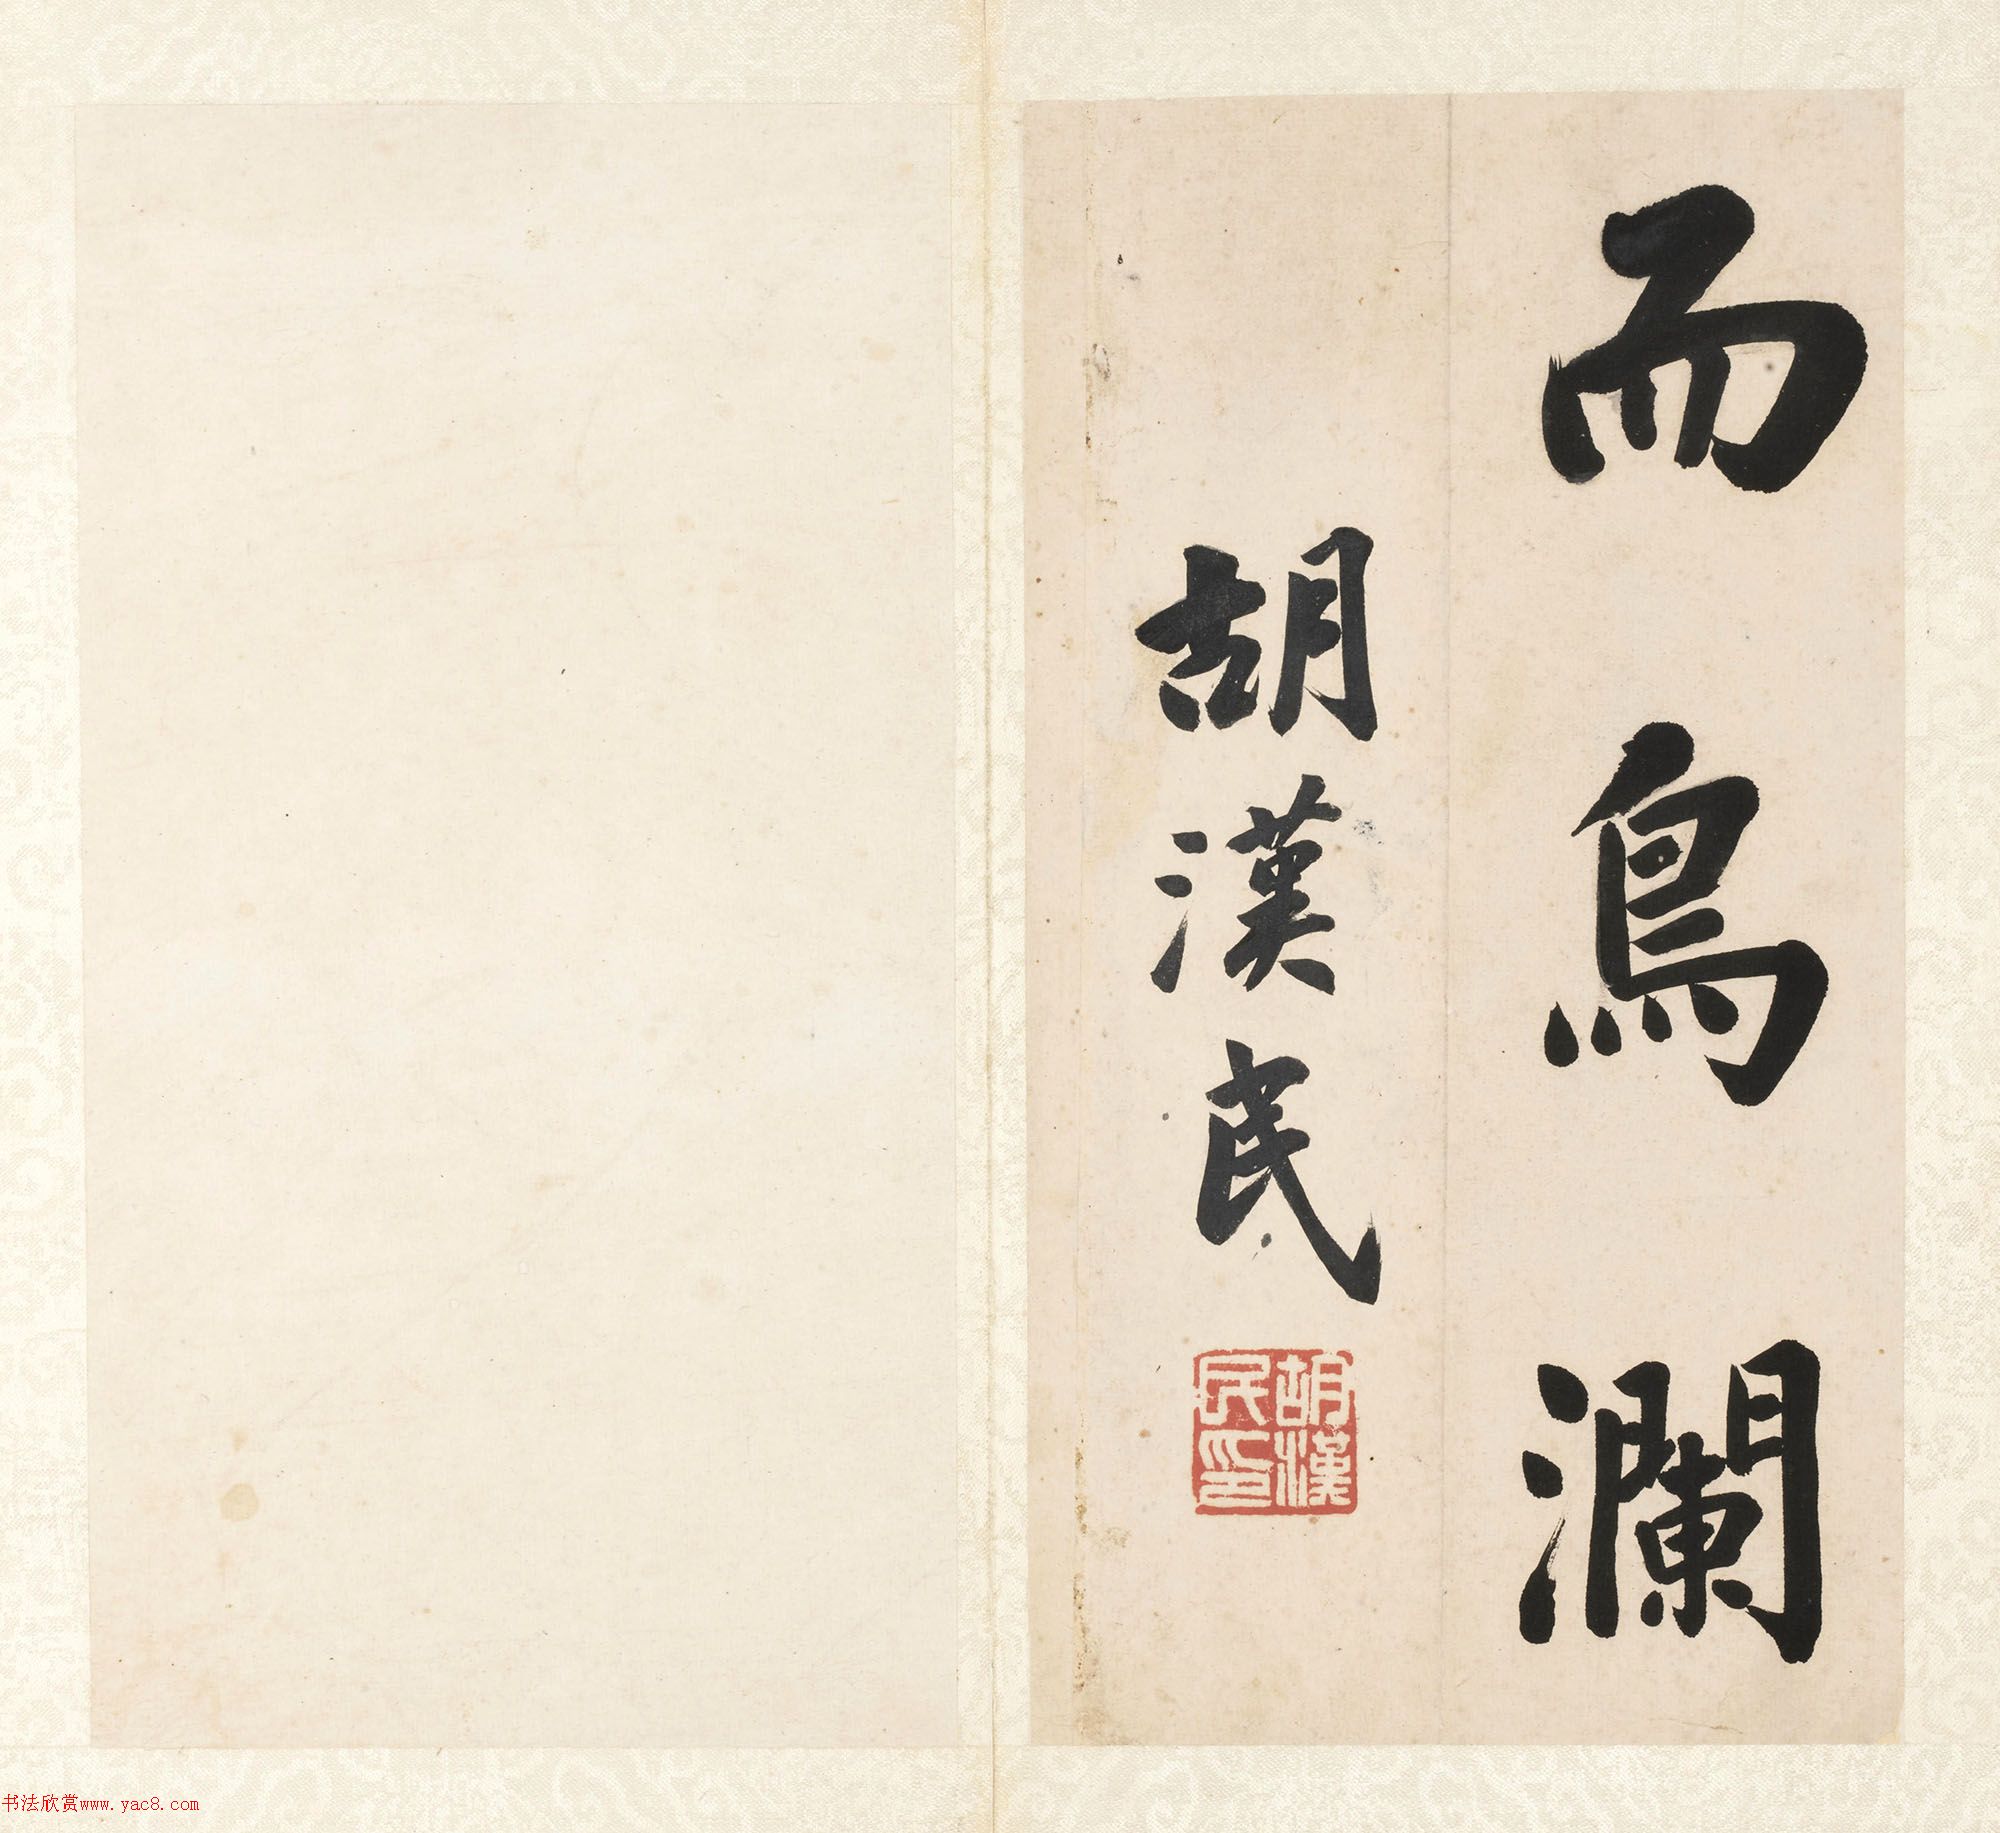 而鳥瀾
胡漢民
胡漢民印
书法欣赏www.yac8.com